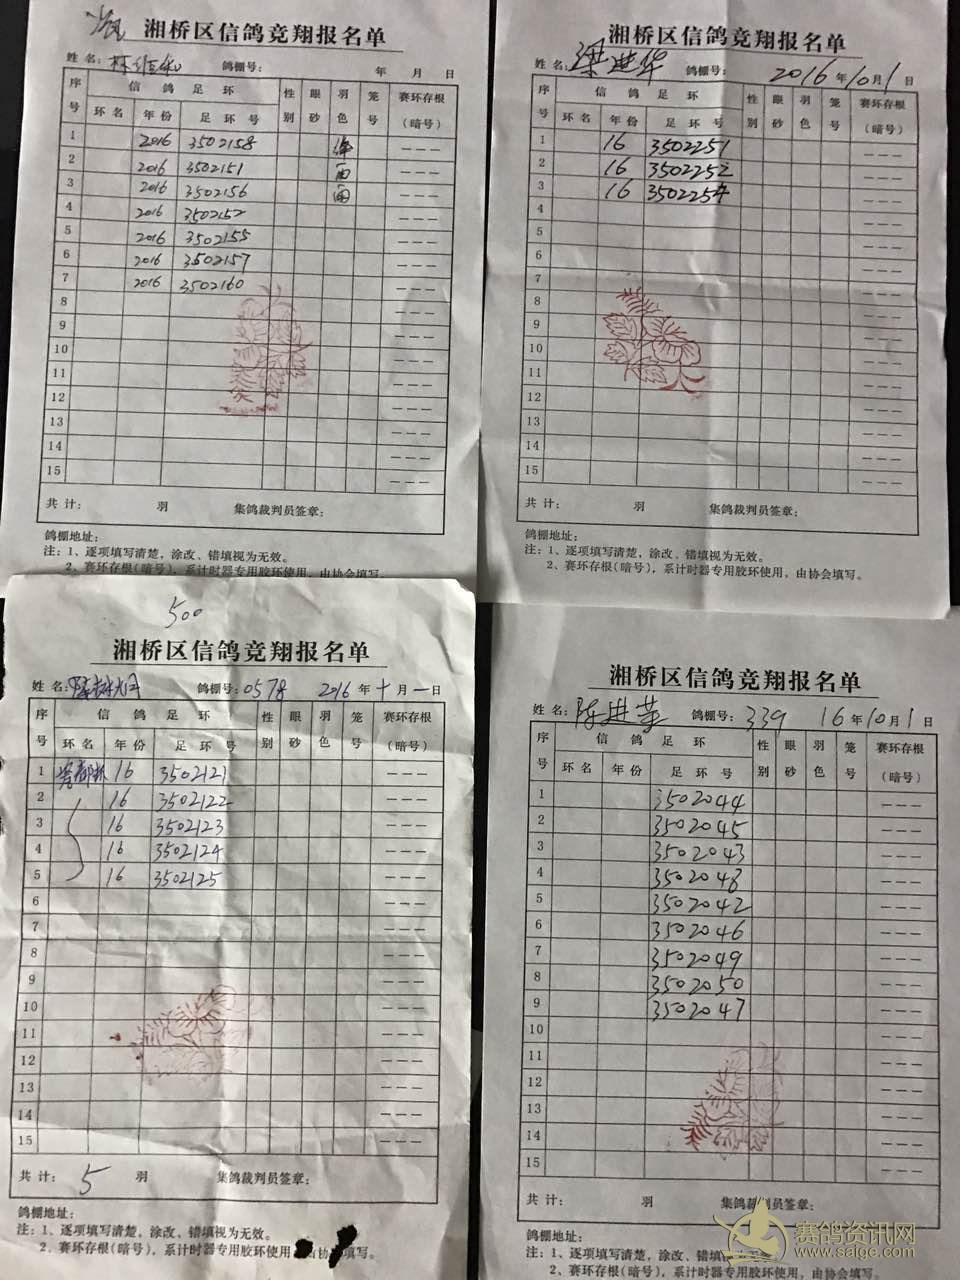 湘桥区信鸽竞翔报名单
姓 名: 林维和 鸽棚号: 年 月 日
序号 信 鸽 足 环 性别 眼砂 羽色 笼号 赛环存根(暗号)
环 名 年 份 足 环 号
1 2016 3502158
2 2016 3502151 雨
3 2016 3502156 雨
4 2016 3502152
5 2016 3502155
6 2016 3502157
7 2016 3502160
8
9
10
11
12
13
14
15
共 计: 羽 集鸽裁判员签章:
鸽棚地址:
注: 1、逐项填写清楚，涂改、错填视为无效。
2、赛环存根(暗号)，系计时器专用胶环使用，由协会填写。
湘桥区信鸽竞翔报名单
姓 名: 梁进华 鸽棚号: 2016 年 10 月 1 日
序号 信 鸽 足 环 性别 眼砂 羽色 笼号 赛环存根(暗号)
环 名 年 份 足 环 号
1 16 3502251
2 16 3502252
3 16 3502254
4
5
6
7
8
9
10
11
12
13
14
15
共 计: 羽 集鸽裁判员签章:
鸽棚地址:
注: 1、逐项填写清楚，涂改、错填视为无效。
2、赛环存根(暗号)，系计时器专用胶环使用，由协会填写。
500
湘桥区信鸽竞翔报名单
姓 名: 鸽棚号: 0578 2016 年 十 月 一 日
序号 信 鸽 足 环 性别 眼砂 羽色 笼号 赛环存根(暗号)
环 名 年 份 足 环 号
1 瓷都杯 16 3502121
2 16 3502122
3 16 3502123
4 16 3502124
5 16 3502125
6
7
8
9
10
11
12
13
14
15
共 计: 5 羽 集鸽裁判员签章:
鸽棚地址:
注: 1、逐项填写清楚，涂改、错填视为无效。
2、赛环存根(暗号)，系计时器专用胶环使用 由协会填写。
湘桥区信鸽竞翔报名单
姓 名: 陈进荣 鸽棚号: 339 16 年 10 月 1 日
序号 信 鸽 足 环 性别 眼砂 羽色 笼号 赛环存根(暗号)
环 名 年 份 足 环 号
1 3502044
2 3502045
3 3502043
4 3502048
5 3502042
6 3502046
7 3502049
8 3502050
9 3502047
10
11
12
13
14
15
共 计: 羽 集鸽裁判员签章:
鸽棚地址:
注: 1、逐项填写清楚，涂改、错填视为无效。
2、赛环存根(暗号)，系计时器专用胶环使用，由协会填写。
赛鸽资讯网
www.saige.com